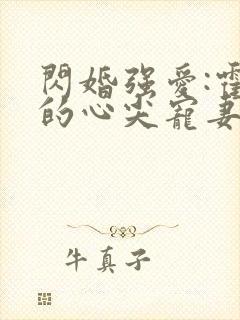 閃婚強愛:霍
的心尖寵妻
牛真子